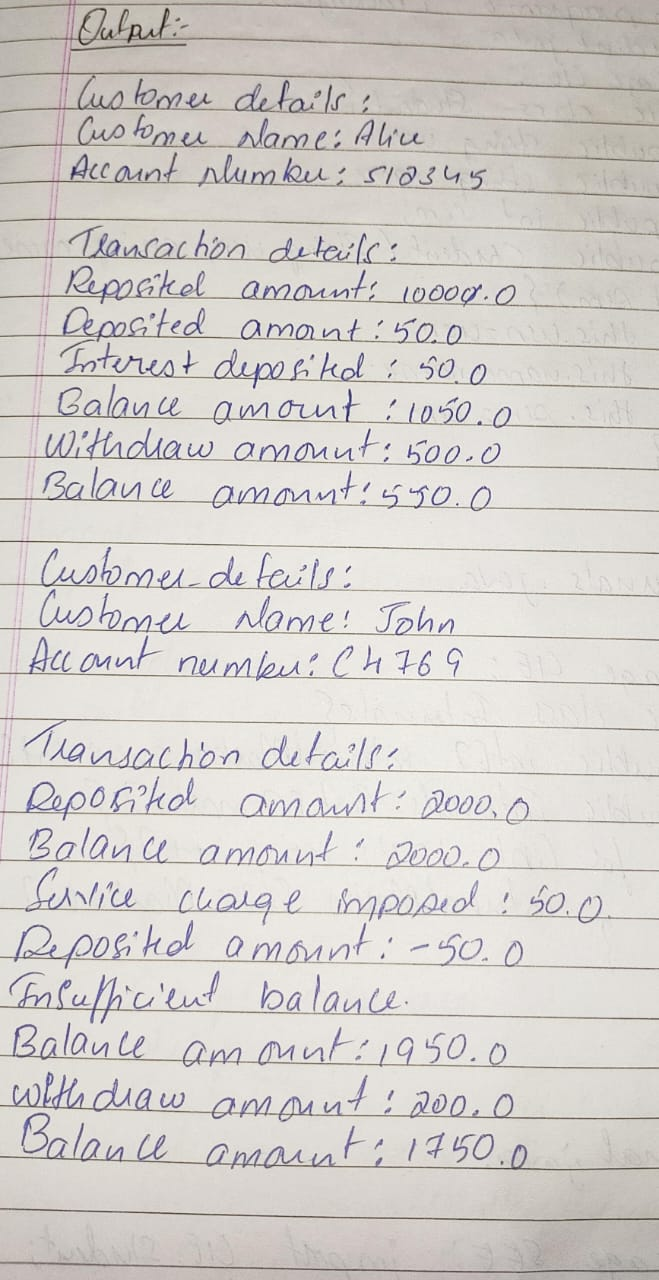 Output:-
Customer details:
Customer Name: Alice
Account Number: S10345
Transaction details:
Deposited amount: 1000.0
Deposited amount: 50.0
Interest deposited: 50.0
Balance amount: 1050.0
Withdraw amount: 500.0
Balance amount: 550.0
Customer details:
Customer Name: John
Account number: C4769
Transaction details:
Deposited amount: 2000.0
Balance amount: 2000.0
Service charge imposed: 50.0
Deposited amount: -50.0
Insufficient balance.
Balance amount: 1950.0
Withdraw amount: 200.0
Balance amount: 1750.0